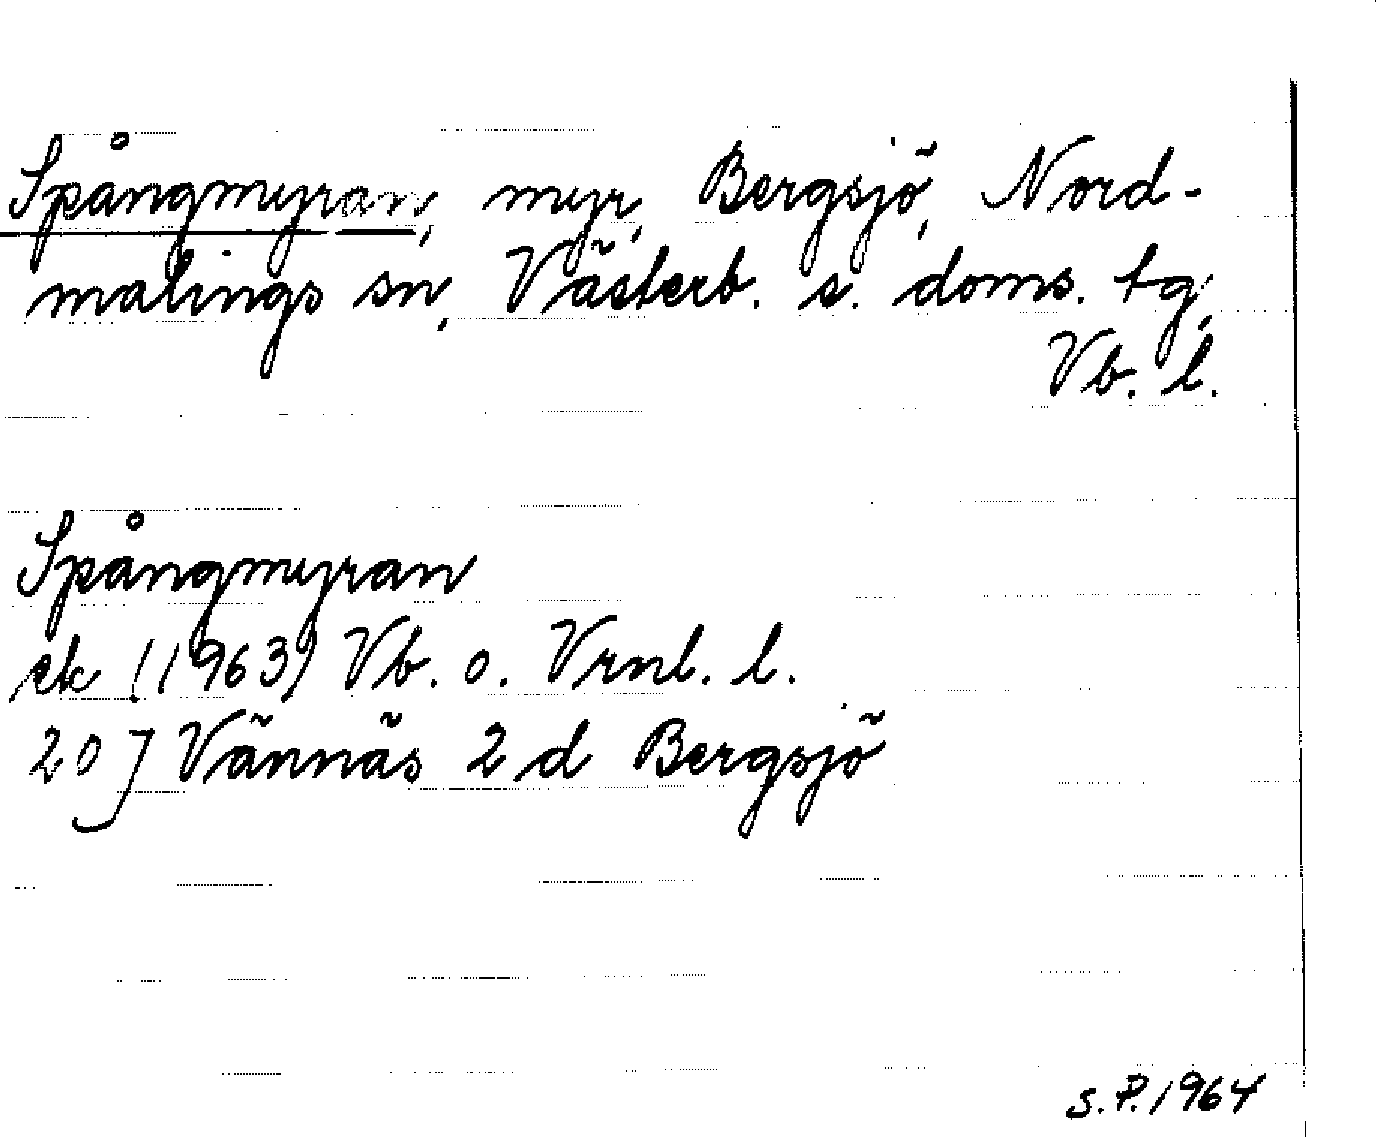 Spångmyran, myr, Bergsjö, Nord-
malings sn, Västerb. s. doms. tg,
Vb. l.
Spångmyran
ek (1963) Vb. o. Vrnl. l.
20 J Vännäs 2 d Bergsjö
S.P. 1964